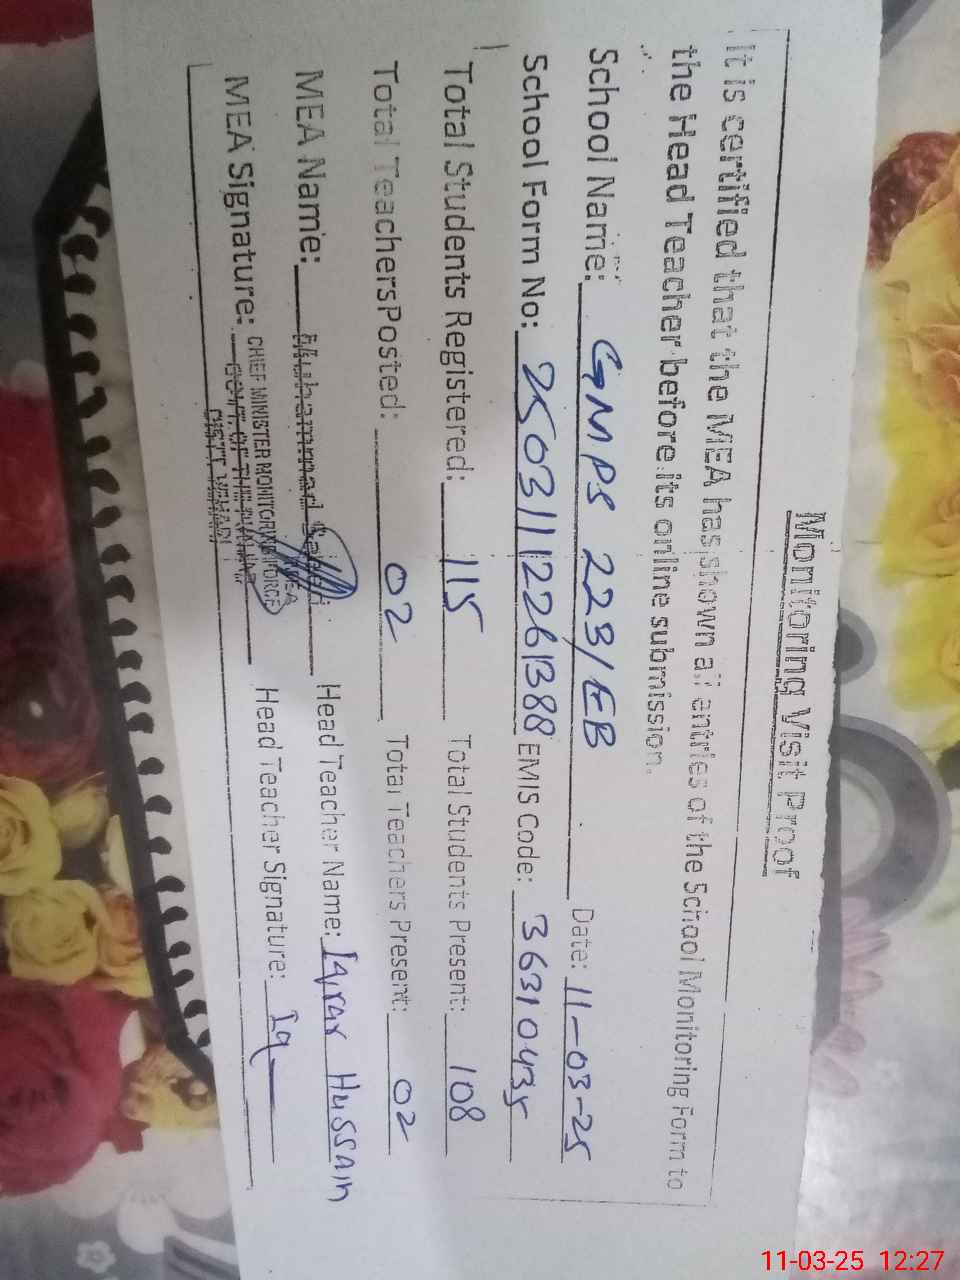 Monitoring Visit Proof
It is certified that the MEA has shown all entries of the School Monitoring Form to
the Head Teacher before its online submission.
School Name: GMPS 223/EB Date: 11-03-25
School Form No: 2503112261388 EMIS Code: 36310435
Total Students Registered: 115 Total Students Present: 108
Total Teachers Posted: 02 Total Teachers Present: 02
MEA Name: Muhammad Head Teacher Name: Iqrar Hussain
MEA
MEA Signature: CHIEF MINISTER MONITORING FORCE Head Teacher Signature: Iq
GOVT. OF THE PUNJAB
DISTT VEHARI
11-03-25 12:27